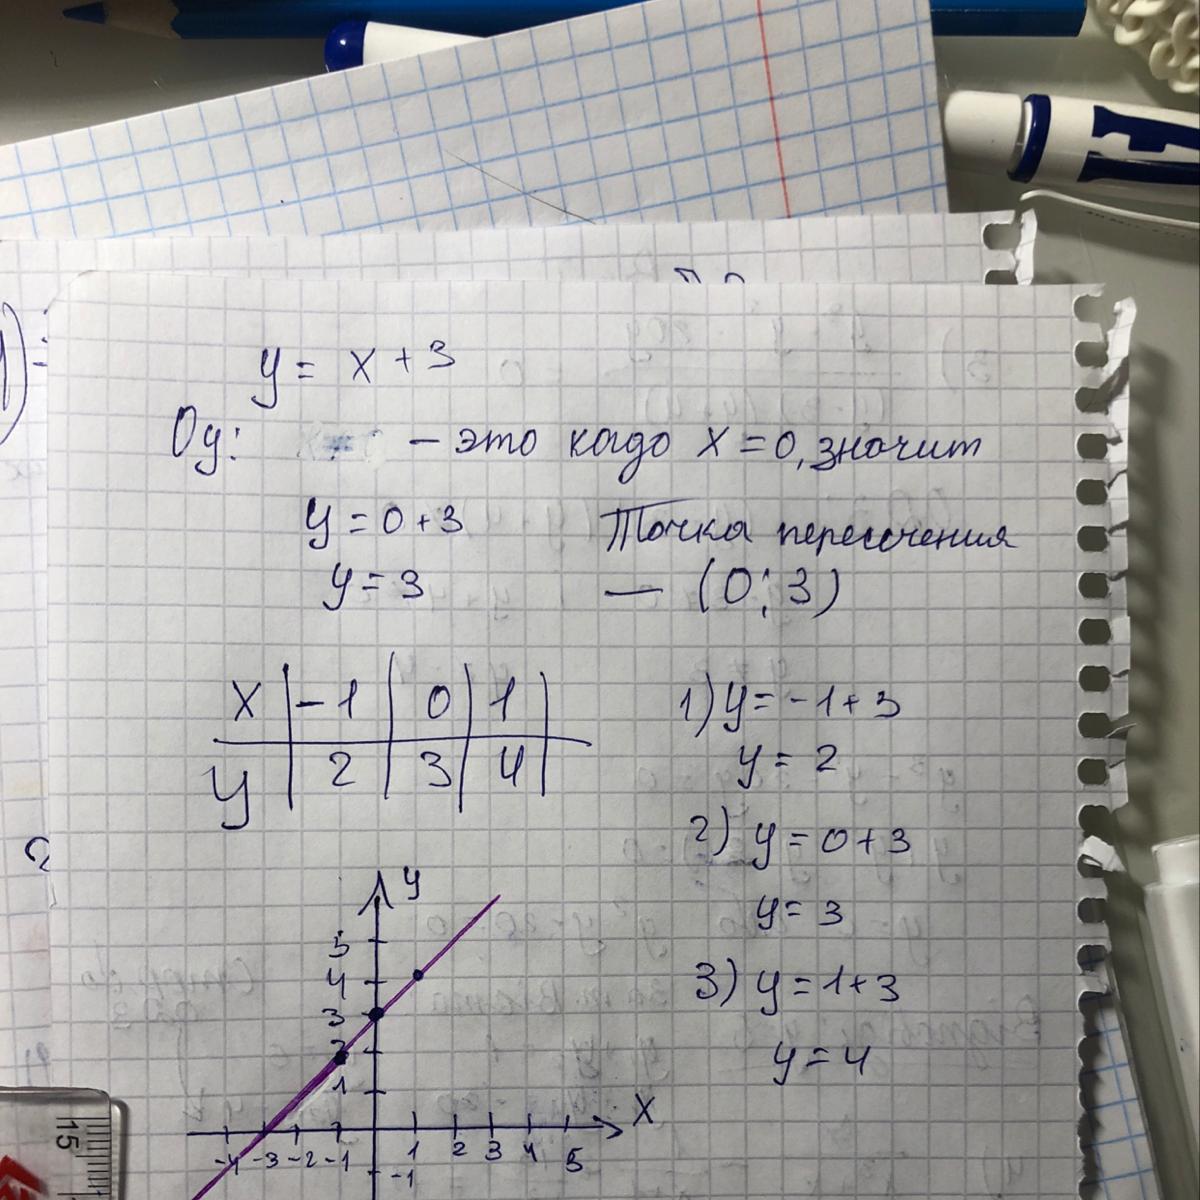 y = x + 3
Oy: — это кагдо x = 0, значит
y = 0 + 3
y = 3
Точка пересечения
— (0; 3)
x | -1 | 0 | 1 |
y | 2 | 3 | 4 |
1) y = -1 + 3
y = 2
2) y = 0 + 3
y = 3
3) y = 1 + 3
y = 4
y
5
4
3
2
1
x
-4 -3 -2 -1 1 2 3 4 5
-1
15